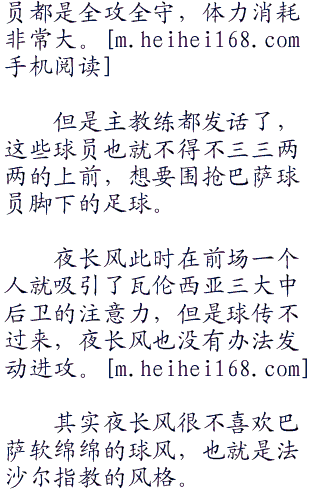 员都是全攻全守，体力消耗
非常大。[m.heihei168.com
手机阅读]
但是主教练都发话了，
这些球员也就不得不三三两
两的上前，想要围抢巴萨球
员脚下的足球。
夜长风此时在前场一个
人就吸引了瓦伦西亚三大中
后卫的注意力，但是球传不
过来，夜长风也没有办法发
动进攻。[m.heihei168.com]
其实夜长风很不喜欢巴
萨软绵绵的球风，也就是法
沙尔指教的风格。